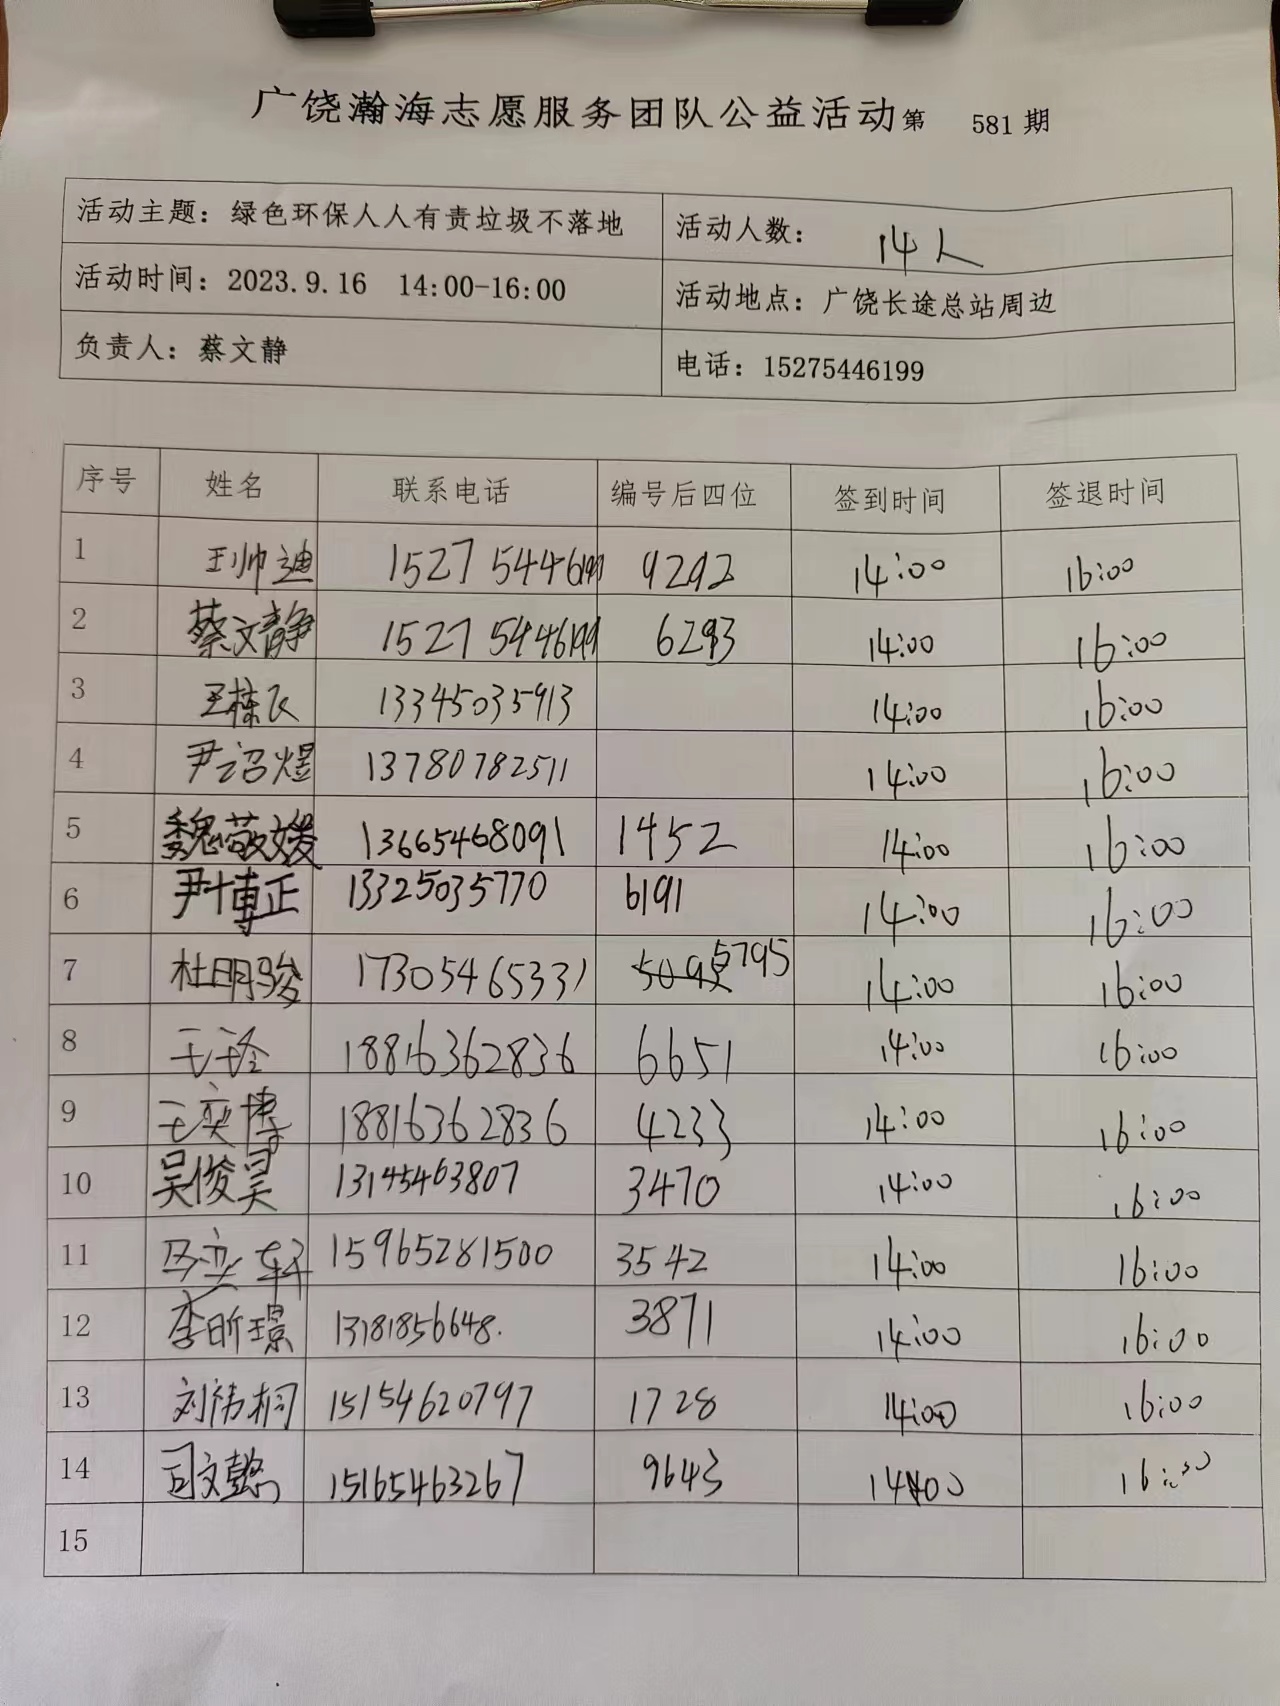 广饶瀚海志愿服务团队公益活动第 581期
活动主题：绿色环保人人有责垃圾不落地 活动人数： 14人
活动时间：2023.9.16 14:00-16:00 活动地点：广饶长途总站周边
负责人：蔡文静 电话：15275446199
序号 姓名 联系电话 编号后四位 签到时间 签退时间
1 王帅迪 15275446199 9292 14:00 16:00
2 蔡文静 15275446199 6293 14:00 16:00
3 王栋飞 13345035913 14:00 16:00
4 尹诏煜 13780782511 14:00 16:00
5 魏敬媛 13665468091 1452 14:00 16:00
6 尹博正 13325035770 6191 14:00 16:00
7 杜明骏 17305465331 5795 14:00 16:00
8 18816362836 6651 14:00 16:00
9 王奕博 18816362836 4233 14:00 16:00
10 吴俊昊 13145463807 3470 14:00 16:00
11 马奕轩 15965281500 3542 14:00 16:00
12 李昕璟 13181856648. 3871 14:00 16:00
13 刘祎桐 15154620797 1728 14:00 16:00
14 司文懿 15165463267 9643 14:00 16:00
15